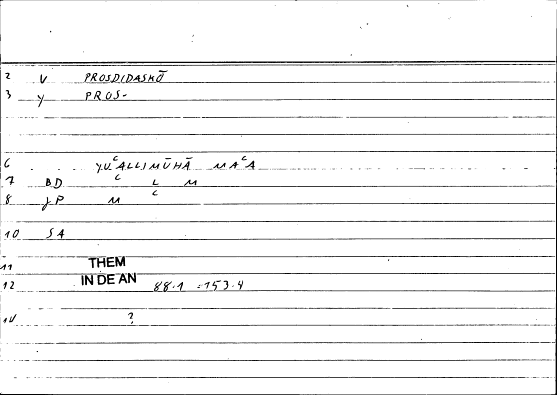 2 V PROSDIDASKŌ
3 y PROS-
6 yuᶜALLIMŪHĀ MAᶜA
7 BD ᶜ L M
8 JP M ᶜ
10 SA
11 THEM
12 IN DE AN 88.1 =153.4
14 ?